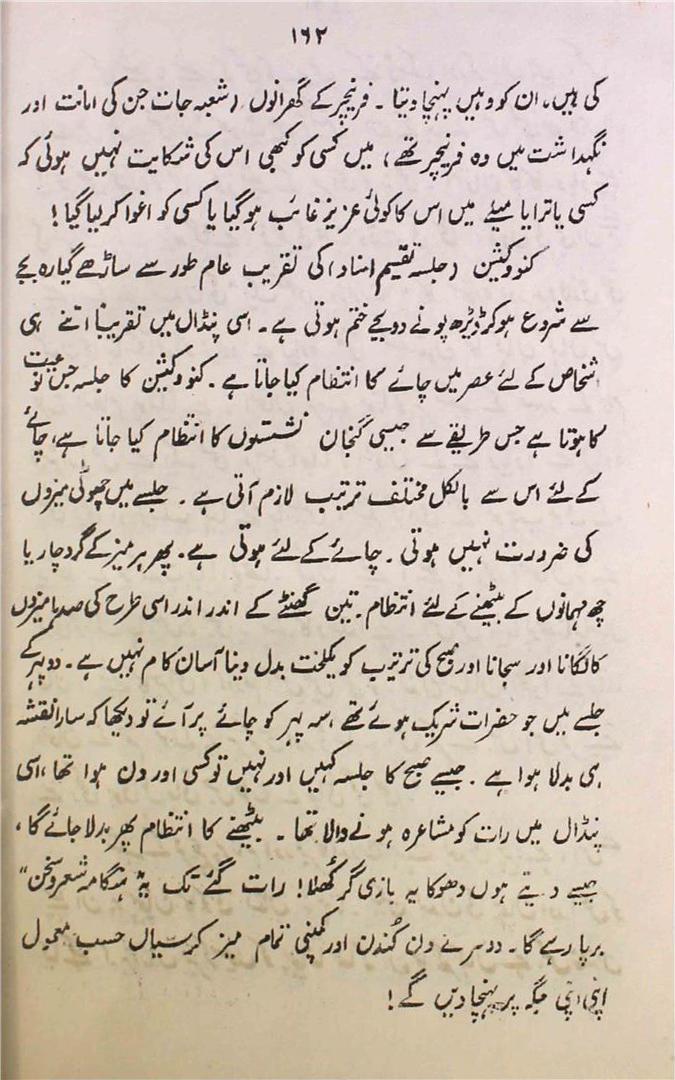 ۱۶۲
کی ہیں۔ ان کو وہیں پہنچا دینا۔ فرنیچر کے گھرانوں (شعبہ جات جن کی امانت اور
نگہداشت میں وہ فرنیچر تھے) میں کسی کو کبھی اس کی شکایت نہیں ہوئی کہ
کسی یاترا یا میلے میں اس کا کوئی عزیز غائب ہو گیا یا کسی کو اغوا کر لیا گیا!
کنووکیشن (جلسہ تقسیم اسناد) کی تقریب عام طور سے ساڑھے گیارہ بجے
سے شروع ہو کر ڈیڑھ پونے دو بجے ختم ہوتی ہے۔ اسی پنڈال میں تقریباً اتنے ہی
اشخاص کے لئے عصر میں چائے کا انتظام کیا جاتا ہے۔ کنووکیشن کا جلسہ جس نوعیت
کا ہوتا ہے جس طریقے سے جیسی گنجان نشستوں کا انتظام کیا جاتا ہے، چائے
کے لئے اس سے بالکل مختلف ترتیب لازم آتی ہے۔ جلسے میں چھوٹی میزوں
کی ضرورت نہیں ہوتی۔ چائے کے لئے ہوتی ہے۔ پھر ہر میز کے گرد چار یا
چھ مہمانوں کے بیٹھنے کے لئے انتظام۔ تین گھنٹے کے اندر اندر اسی طرح کی صدہا میزوں
کا لگانا اور سجانا اور صبح کی ترتیب کو یکلخت بدل دینا آسان کام نہیں ہے۔ دوپہر کے
جلسے میں جو حضرات شریک ہوئے تھے، سہ پہر کو چائے پر آئے تو دیکھا کہ سارا نقشہ
ہی بدلا ہوا ہے۔ جیسے صبح کا جلسہ کہیں اور نہیں تو کسی اور دن ہوا تھا، اسی
پنڈال میں رات کو مشاعرہ ہونے والا تھا۔ بیٹھنے کا انتظام پھر بدلا جائے گا،
جیسے دیتے ہوں دھوکا یہ بازی گر کھلا! رات گئے تک یہ "ہنگامہ شعر و سخن"
برپا رہے گا۔ دوسرے دن کندن اور کمپنی تمام میز کرسیاں حسب معمول
اپنی اپنی جگہ پر پہنچا دیں گے!